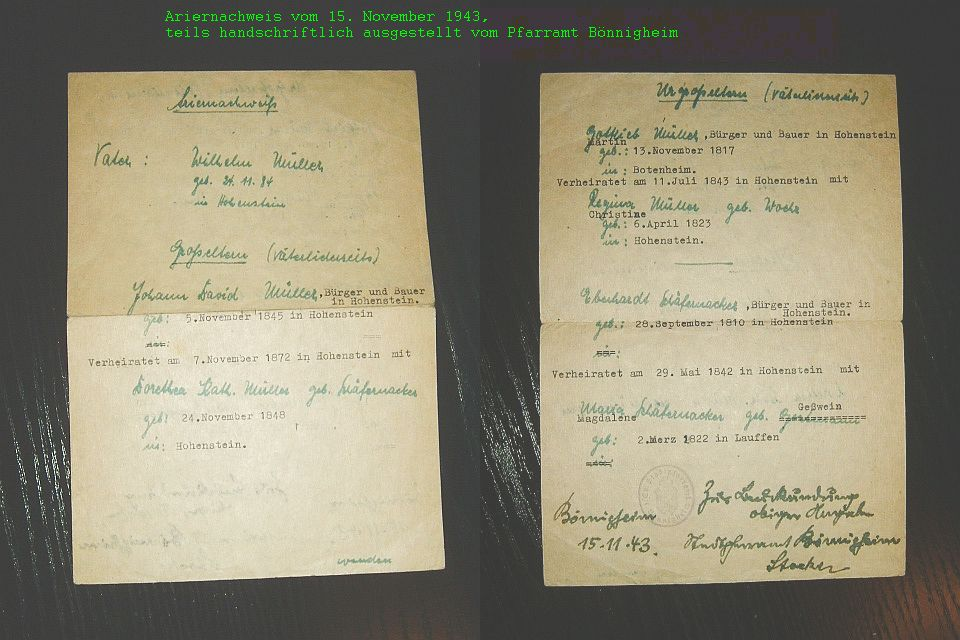 Ariernachweis vom 15. November 1943,
teils handschriftlich ausgestellt vom Pfarramt Bönnigheim
Ariernachweiß
Vater : Wilhelm Müller
geb. 24.11.84
in Hohenstein
Großeltern (väterlicherseits)
Johann David Müller, Bürger und Bauer
in Hohenstein.
geb: 5.November 1845 in Hohenstein
in:
Verheiratet am 7.November 1872 in Hohenstein mit
Dorothea Kath. Müller geb. Schäfernacker
geb: 24.November 1848
in: Hohenstein.
wenden
Urgroßeltern (väterlicherseits)
Gottlieb Müller, Bürger und Bauer in Hohenstein
Martin
geb.: 13.November 1817
in: Botenheim.
Verheiratet am 11.Juli 1843 in Hohenstein mit
Regina Müller geb. Woehr
Christine
geb.: 6.April 1823
in: Hohenstein.
Eberhardt Schäfernacker, Bürger und Bauer in
Hohenstein.
geb.: 28.September 1810 in Hohenstein
in:
Verheiratet am 29. Mai 1842 in Hohenstein mit
Geßwein
Maria Schäfernacker geb.
Magdalene
geb: 2.Merz 1822 in Lauffen
in:
Zur Beurkundung
obiger Angaben
Bönnigheim
15.11.43. Stadtpfarramt Bönnigheim